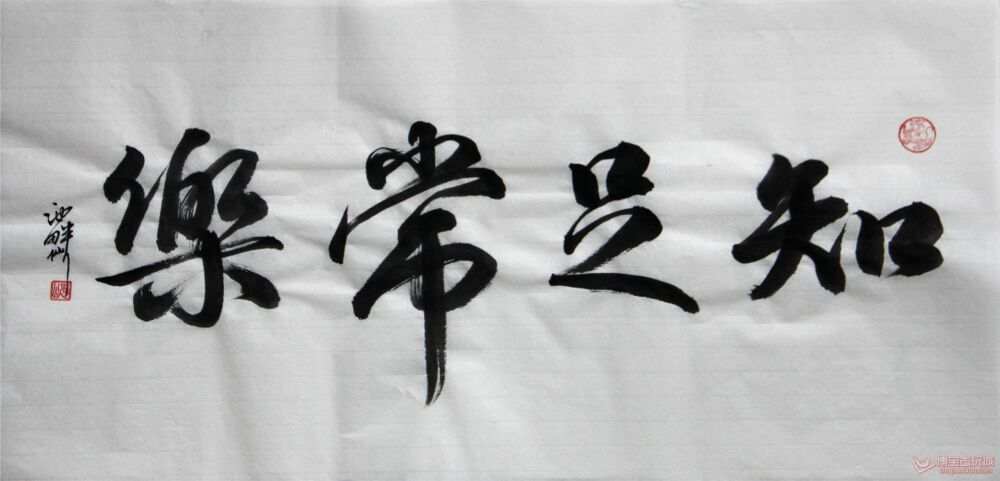 知足常樂
池畔仙